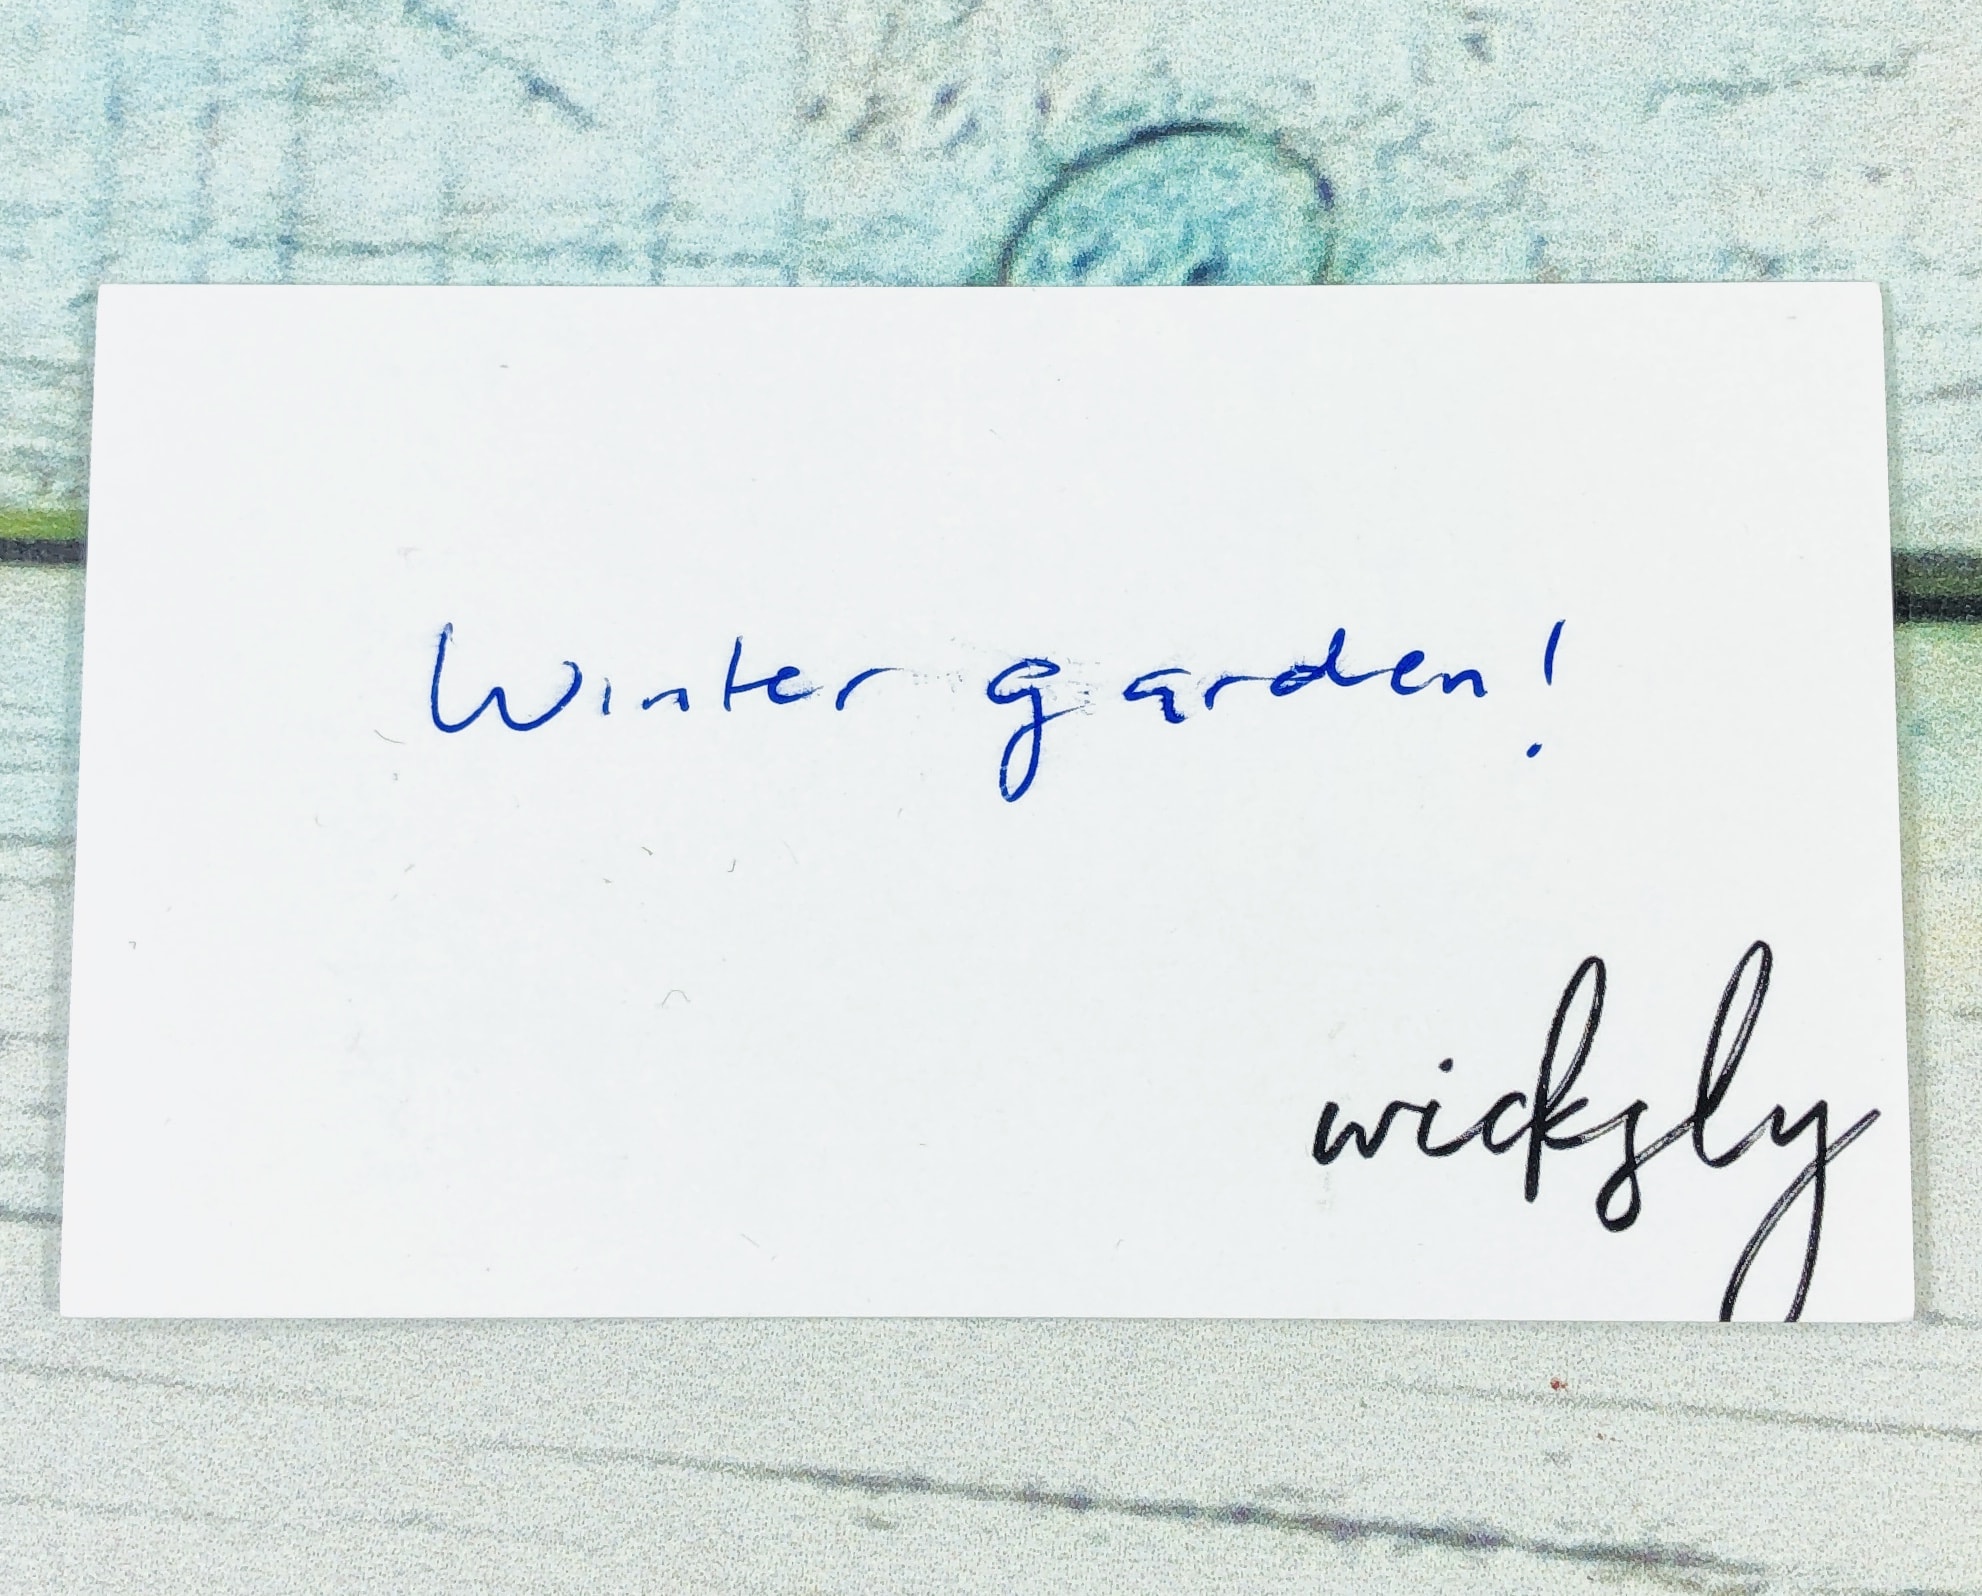 Winter garden!
wicksly